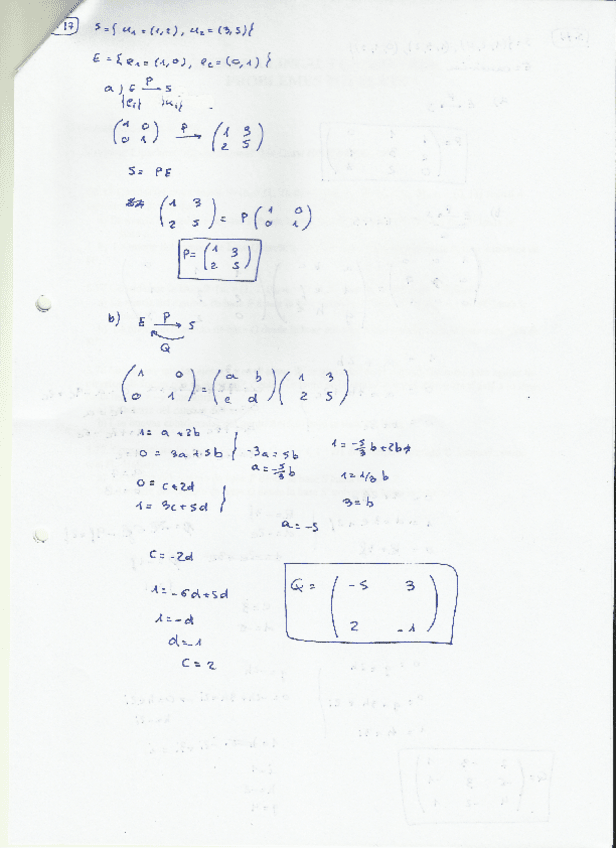 17 S={u₁=(1,2), u₂=(3,5)}
E={e₁=(1,0), e₂=(0,1)}
a) E →P S
{eᵢ} {uᵢ}
(1 0; 0 1) →P (1 3; 2 5)
S= PE
(1 3; 2 5) = P (1 0; 0 1)
P= (1 3; 2 5)
b) E →P S
Q
(1 0; 0 1) = (a b; c d) (1 3; 2 5)
1= a+2b
0= 3a+5b } -3a=5b 1=-5/3 b+2b
a=-5/3 b 1=1/3 b
0= c+2d
1= 3c+5d } 3=b
a=-5
c=-2d
1=-6d+5d
1=-d
d=-1
c=2
Q= (-5 3; 2 -1)